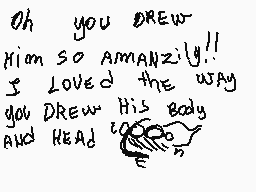 Oh you DREW
Him SO AMANZily!!
I LOVEd the WAY
you DREW His Body
AND HEAD